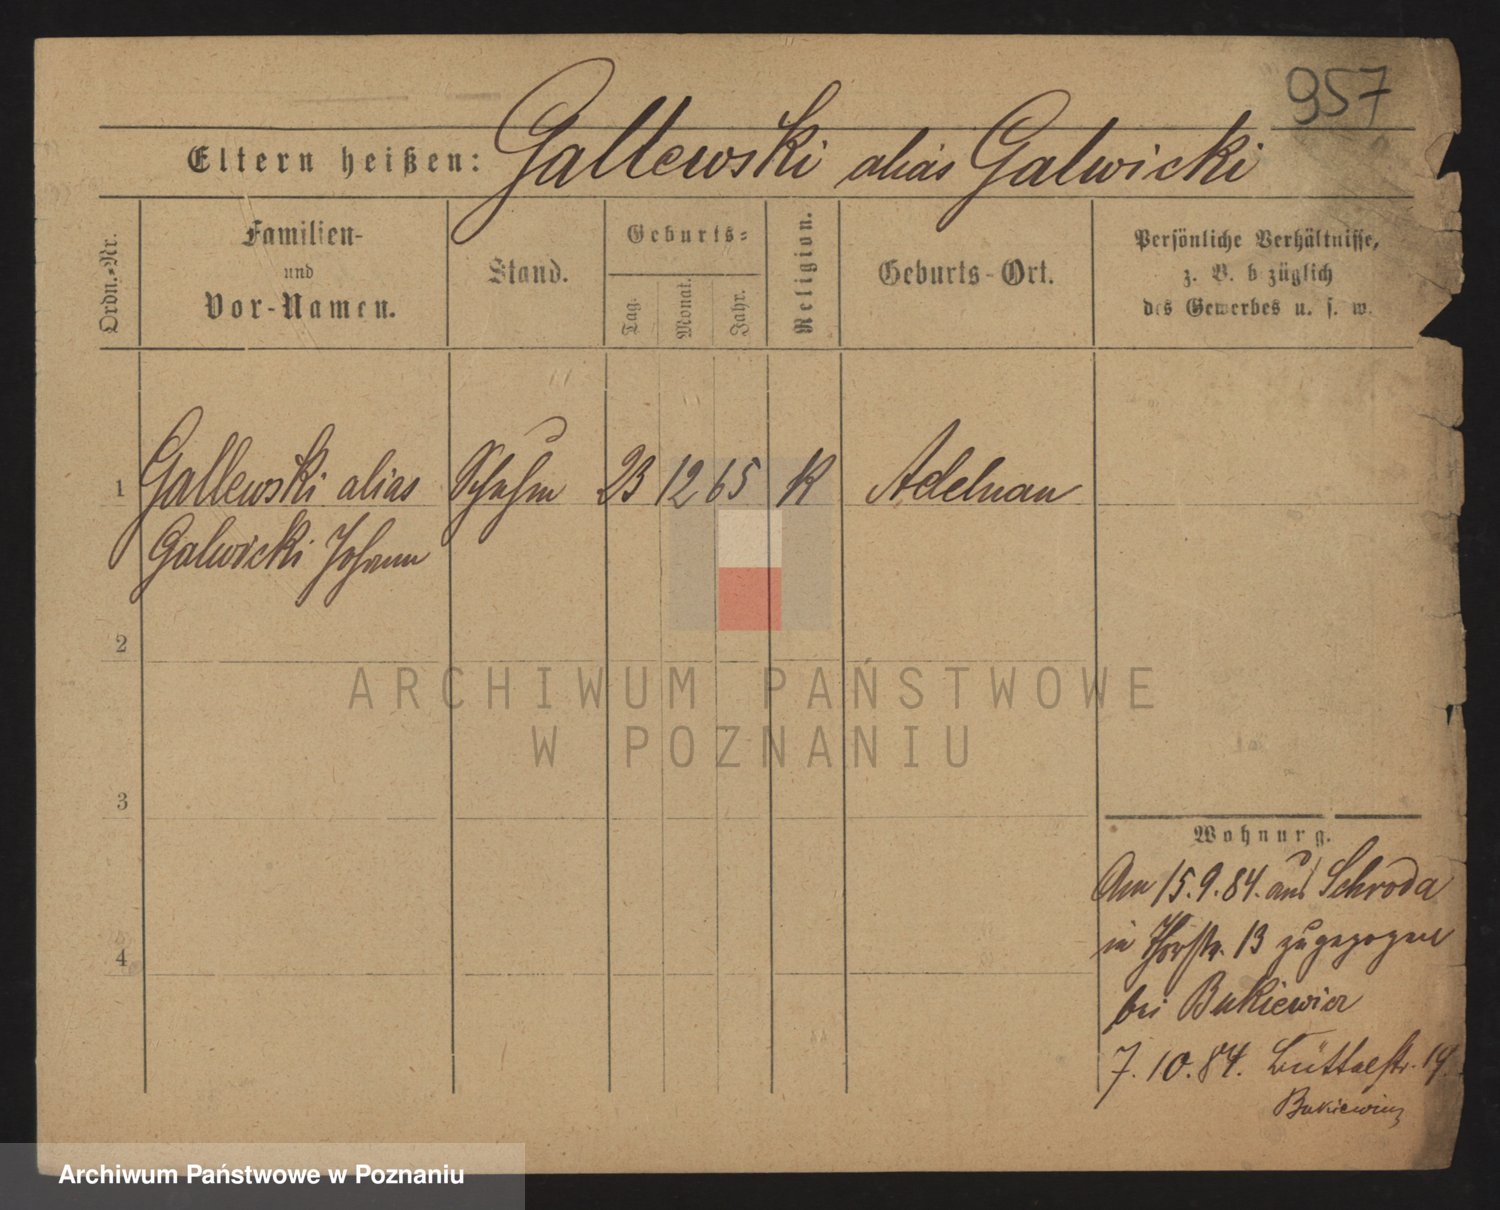 957
Eltern heißen: Gallewski alias Galwicki
Ordn.-Nr.
Familien-
und
Vor-Namen.
Stand.
Geburts-
Tag.
Monat.
Jahr.
Religion.
Geburts-Ort.
Persönliche Verhältnisse,
z. B. b züglich
des Gewerbes u. s. w.
1 Gallewski alias 23 12 65 K Adelnau
Galwicki Johann
2
ARCHIWUM PAŃSTWOWE
W POZNANIU
3
Wohnung.
Am 15.9.84. aus Schroda
in 13 zugezogen
bei Bukiewicz
4
7.10.84. Büttelstr. 19.
Bukiewicz
Archiwum Państwowe w Poznaniu